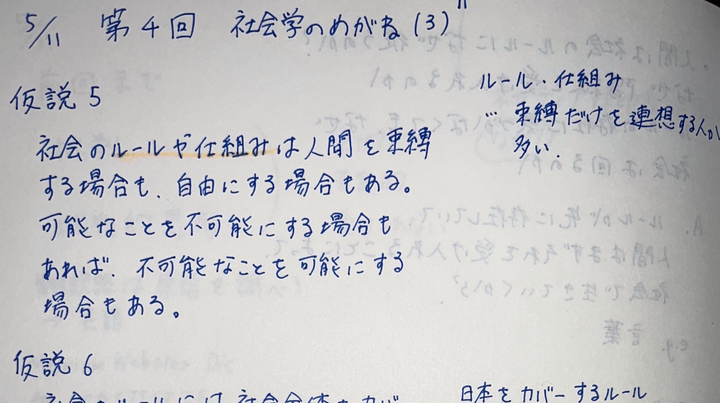 5/11 第4回 社会学のめがね(3)
仮説5
社会のルールや仕組みは人間を束縛
する場合も、自由にする場合もある。
可能なことを不可能にする場合も
あれば、不可能なことを可能にする
場合もある。
ルール・仕組み
… 束縛だけを連想する人が
多い.
仮説6
社会のルールには社会全体をカバー
日本をカバーするルール